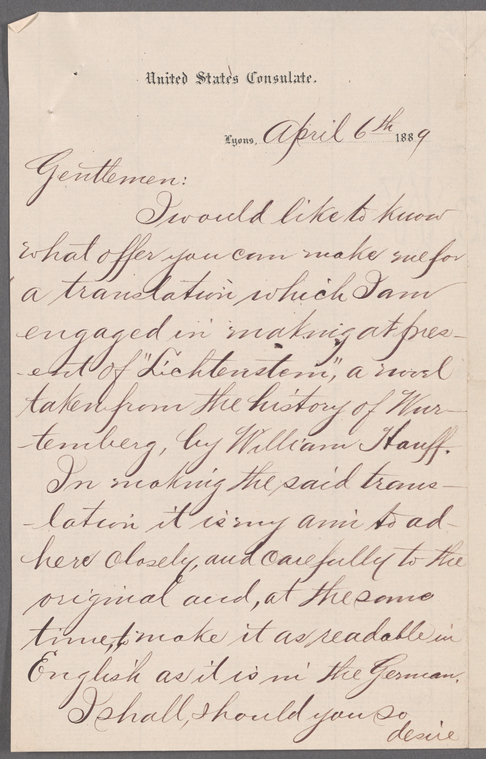 United States Consulate.
Lyons, April 6th 1889
Gentlemen:
I would like to know
what offer you can make me for
a translation which I am
engaged in making at pres-
-ent of "Lichtenstein", a novel
taken from the history of Wur-
-temberg, by William Hauff.
In making the said trans-
-lation it is my aim to ad-
here closely, and carefully to the
original and, at the same
time, to make it as readable in
English as it is in the German.
I shall, should you so
desire